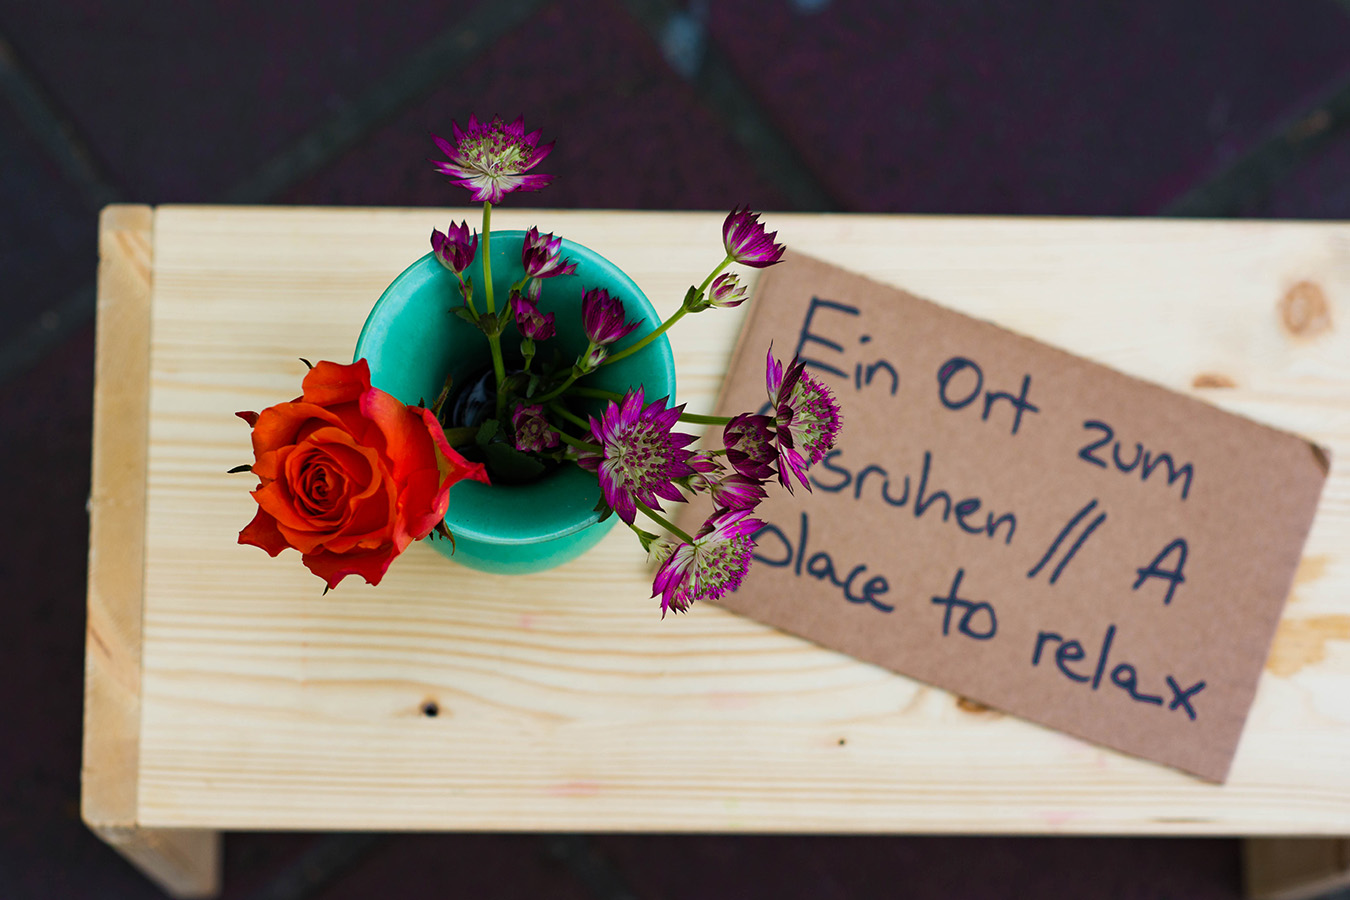 Ein Ort zum
Ausruhen // A
place to relax